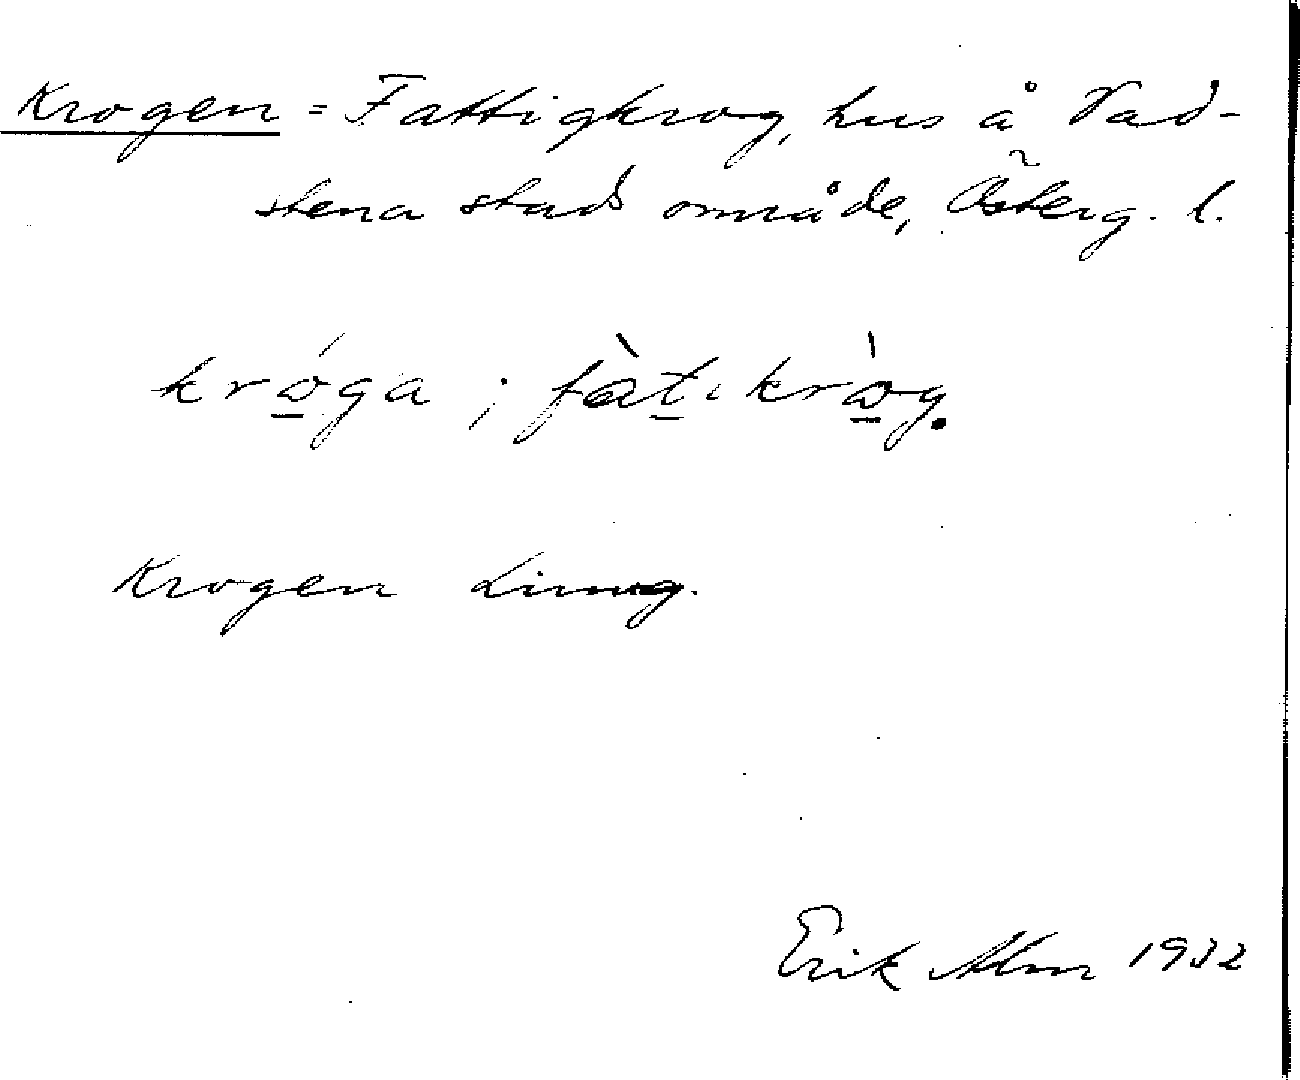 Krogen = Fattigkrog, hus å Vad-
stena stads område, Österg. l.
kró̲ga ; fàt̲ı krò̲g.
Krogen
Erik Alm 1932